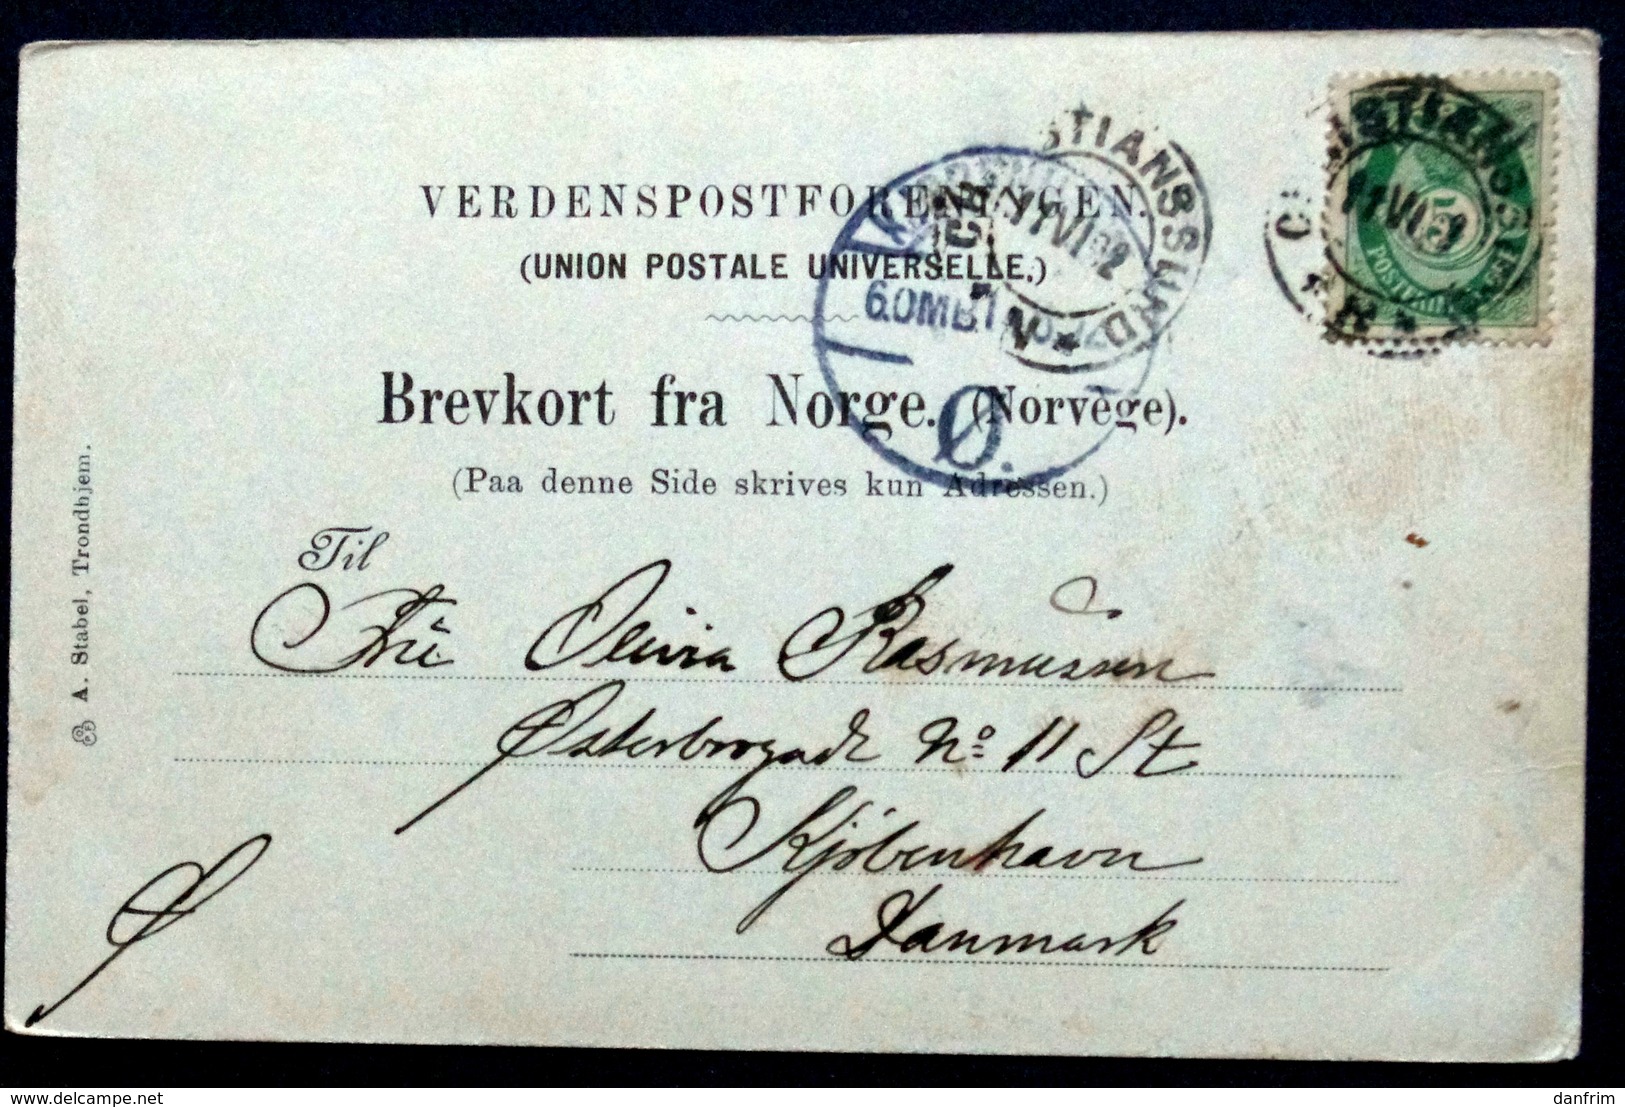 VERDENSPOSTFORENINGEN.
(UNION POSTALE UNIVERSELLE.)
Brevkort fra Norge. (Norvège).
(Paa denne Side skrives kun Adressen.)
Til
Frü Olivia Rasmussen
Østerbrogade No. 11 St
Kjöbenhavn
Danmark
A. Stabel, Trondhjem.
CHRISTIANSSUND
11 VI 02
N
CHRISTIANSSUND
11 VI 02
KJØBENHAVN
6.OMB.1
Ø.
5
POSTFRIM
delcampe.net
danfrim